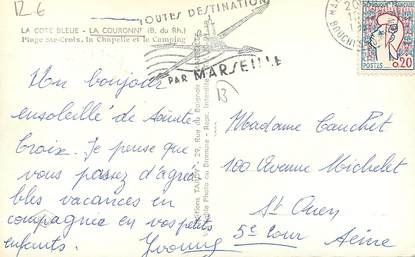 12.6
TOUTES DESTINATIONS
PAR MARSEILLE
LA COTE BLEUE - LA COURONNE (B. du Rh.)
Plage Ste-Croix, la Chapelle et le Camping
REPUBLIQUE FRANCAISE
POSTES 0,20
13
Un bonjour
ensoleillé de Sainte
Croix. Je pense que
vous passez d'agréa
bles vacances en
compagnie en vos petits
enfants. Yvonne
Madame Cauchet
100 Avenue Michelet
St Ouen
5e Cour Seine